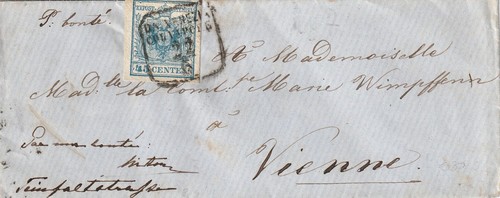 Pr. bonté.
KKPOST-STEMPEL
45 CENTES
A Mademoiselle
Mad.lle la Comt.se Marie Wimpffen
à
Vienne.
Par une bonté.
Teinfaltstrasse